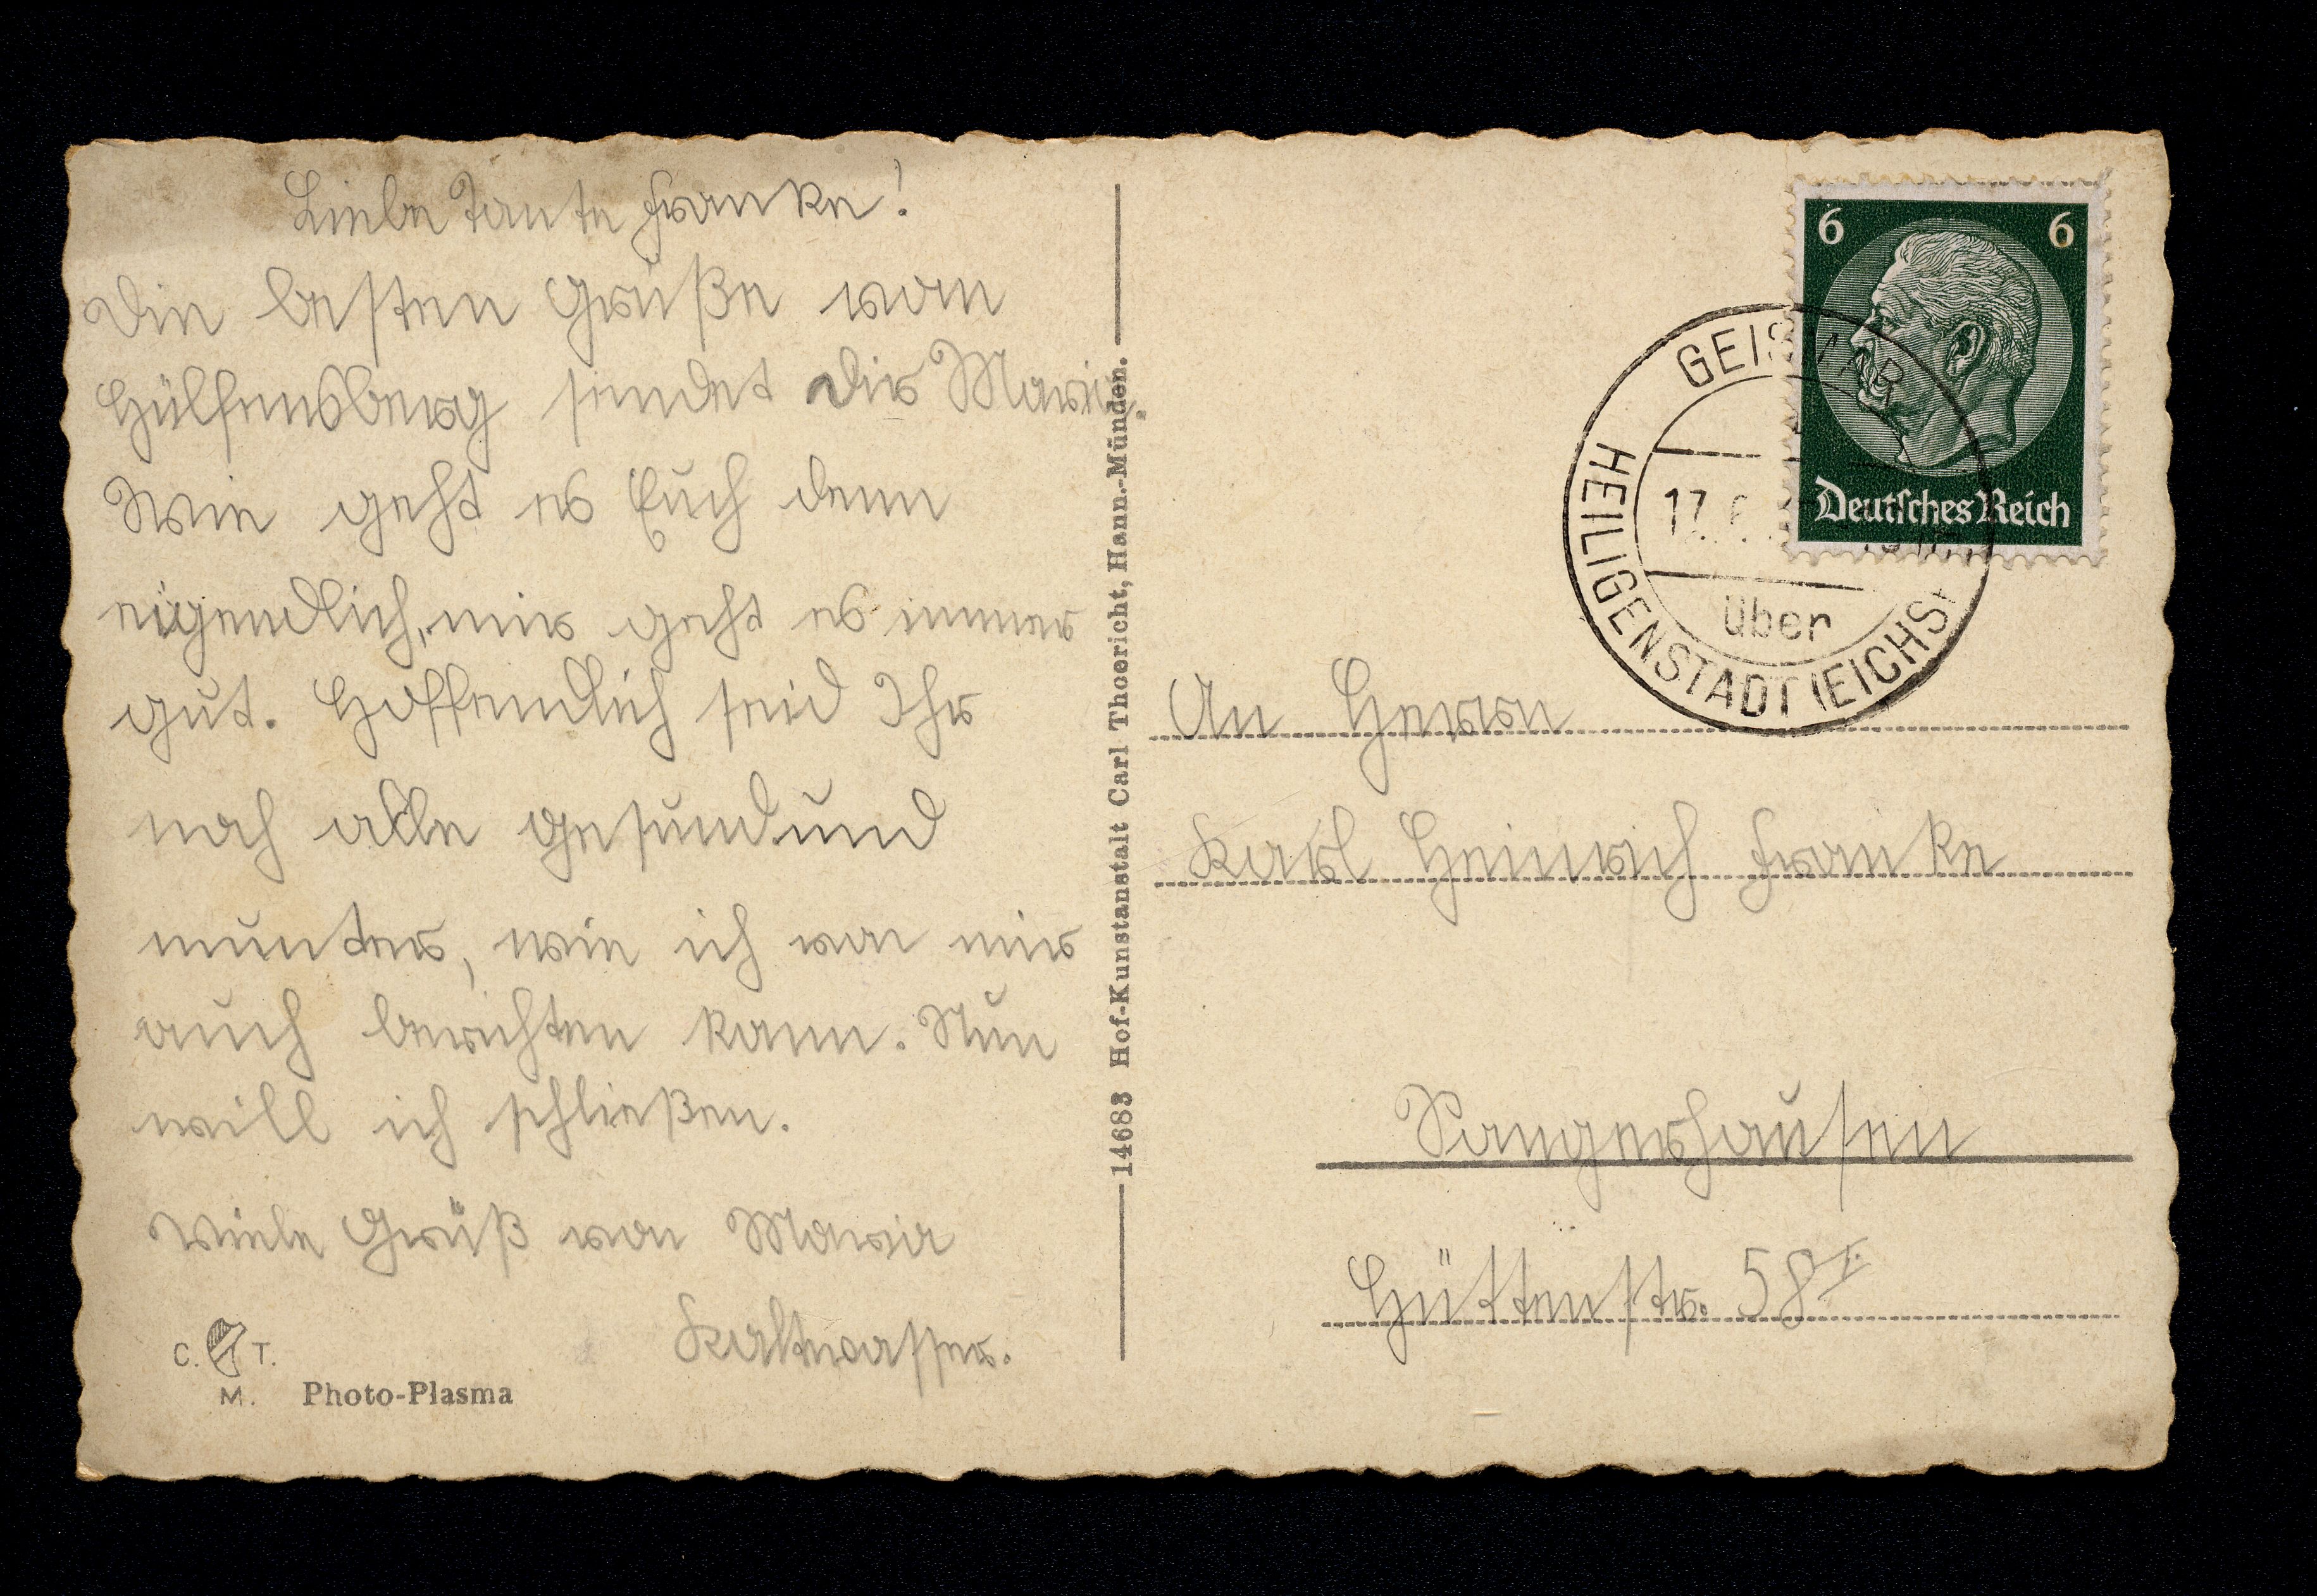 Liebe Tante Franke!
Die besten Grüße vom
Hülfensberg sendet Dir Maria.
Wie geht es Euch denn
eigendlich, mir geht es immer
gut. Hoffendlich seid Ihr
noch alle gesund und
munter, wie ich von mir
auch berichten kann. Nun
will ich schließen.
Viele Grüß von Maria
Kaltwasser.
C. T.
M. Photo-Plasma
14683 Hof-Kunstanstalt Carl Thoericht, Hann.-Münden.
6 6
Deutsches Reich
GEISMAR
17.6.
über
HEILIGENSTADT (EICHSF
An Herrn
Karl Heinrich Franke
Sangerhausen
Hüttenstr. 58 I.